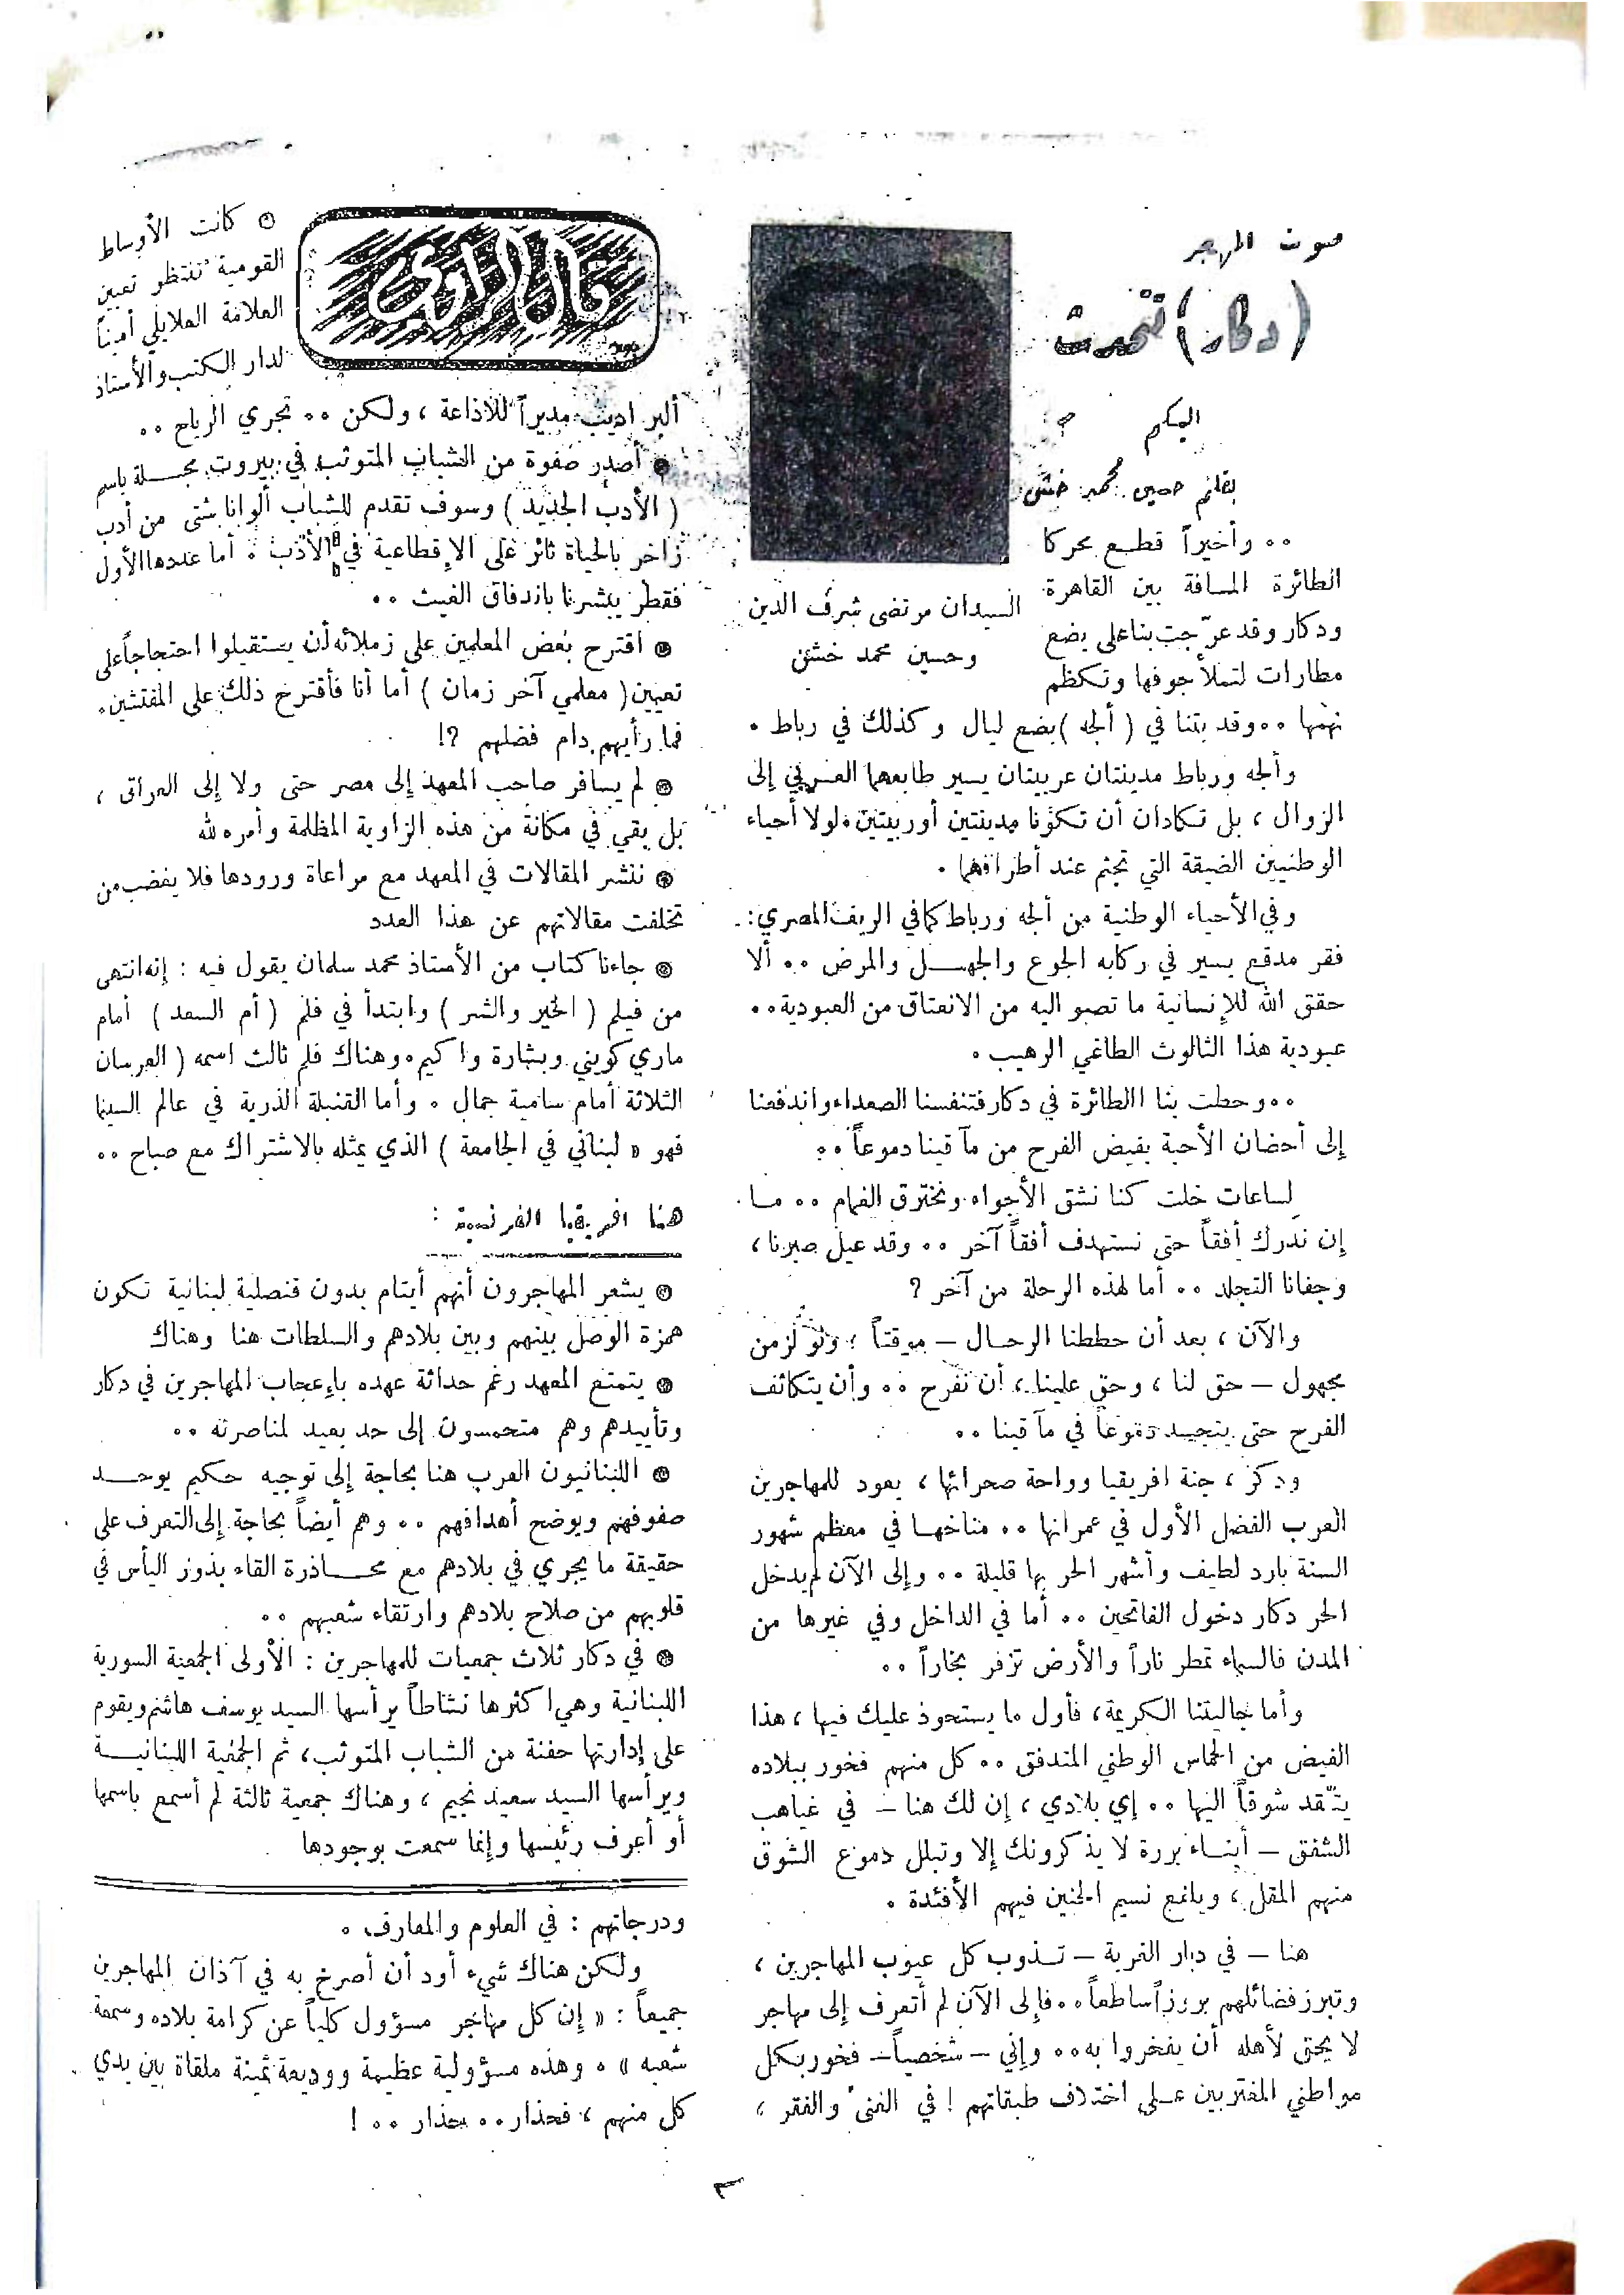 صوت المهجر
(دكار) تتحدث
اليكم
بقلم حسين محمد خشن
٠٠ وأخيراً قطع محركا
الطائرة المسافة بين القاهرة
ودكار وقد عرّجت بنا على بضع
مطارات لتملأ جوفها وتكظم
السيدان مرتضى شرف الدين
وحسين محمد خشن
نهمها ٠٠ وقد بتنا في ( ألجه ) بضع ليال وكذلك في رباط ٠
وألجه ورباط مدينتان عربيتان يسير طابعهما العربي إلى
الزوال ، بل تكادان أن تكونا مدينتين أوربيتين لولا أحياء
الوطنيين الضيقة التي تجثم عند أطرافهما ٠
وفي الأحياء الوطنية من ألجه ورباط كما في الريف المصري :
فقر مدقع يسير في ركابه الجوع والجهل والمرض ٠٠ ألا
حقق الله للإنسانية ما تصبو اليه من الانعتاق من العبودية ٠٠
عبودية هذا الثالوث الطاغي الرهيب ٠
٠٠ وحطت بنا الطائرة في دكار فتنفسنا الصعداء واندفعنا
إلى أحضان الأحبة يفيض الفرح من مآقينا دموعاً ٠٠
لساعات خلت كنا نشق الأجواء ونخترق الغمام ٠٠ ما
إن ندرك أفقاً حتى نستهدف أفقاً آخر ٠٠ وقد عيل صبرنا ،
وجفانا التجلد ٠٠ أما لهذه الرحلة من آخر ؟
والآن ، بعد أن حططنا الرحال – موقتاً ، ولو لزمن
مجهول – حق لنا ، وحق علينا ، أن نفرح ٠٠ وأن يتكاثف
الفرح حتى يتجسد دموعاً في مآقينا ٠٠
ودكر ، جنة افريقيا وواحة صحرائها ، يعود للمهاجرين
العرب الفضل الأول في عمرانها ٠٠ مناخها في معظم شهور
السنة بارد لطيف وأشهر الحر بها قليلة ٠٠ وإلى الآن لم يدخل
الحر دكار دخول الفاتحين ٠٠ أما في الداخل وفي غيرها من
المدن فالسماء تمطر ناراً والأرض تزفر بخاراً ٠٠
وأما جاليتنا الكريمة ، فأول ما يستحوذ عليك فيها ، هذا
الفيض من الحماس الوطني المتدفق ٠٠ كل منهم فخور ببلاده
يتّقد شوقاً اليها ٠٠ إي بلادي ، إن لك هنا – في غياهب
الشفق – أبناء بررة لا يذكرونك إلا وتبلل دموع الشوق
منهم المقل ، ويلفح نسيم الحنين فيهم الأفئدة ٠
هنا – في ديار الغربة – تذوب كل عيوب المهاجرين ،
وتبرز فضائلهم بروزاً ساطعاً ٠٠ فإلى الآن لم أتعرف إلى مهاجر
لا يحق لأهله أن يفخروا به ٠٠ وإني – شخصياً – فخور بكل
مواطني المغتربين على اختلاف طبقاتهم ! في الغنى والفقر ،
قال الراوي
◉ كانت الأوساط
القومية تنتظر تعيين
العلامة العلايلي أميناً
لدار الكتب والأستاذ
ألبر اديب مديراً للاذاعة ، ولكن ٠٠ تجري الرياح ٠٠
◉ أصدر صفوة من الشباب المتوثب في بيروت مجلة باسم
( الأدب الجديد ) وسوف تقدم للشباب ألوانا شتى من أدب
زاخر بالحياة ثائر على الإقطاعية في الأدب ٠ أما عددها الأول
فقطر يبشرنا باندفاق الغيث ٠٠
◉ اقترح بعض المعلمين على زملائه أن يستقيلوا احتجاجاً على
تعيين ( معلمي آخر زمان ) أما أنا فأقترح ذلك على المفتشين ٠
فما رأيهم دام فضلهم ؟!
◉ لم يسافر صاحب المعهد إلى مصر حتى ولا إلى العراق ،
بل بقي في مكانة من هذه الزاوية المظلمة وأمره لله
◉ ننشر المقالات في المعهد مع مراعاة ورودها فلا يغضب من
تخلفت مقالاتهم عن هذا العدد
◉ جاءنا كتاب من الأستاذ محمد سلمان يقول فيه : إنه انتهى
من فيلم ( الخير والشر ) وابتدأ في فلم ( أم السعد ) أمام
ماري كويني وبشارة واكيم ٠ وهناك فلم ثالث اسمه ( الفرسان
الثلاثة أمام سامية جمال ٠ وأما القنبلة الذرية في عالم السينما
فهو « لبناني في الجامعة ) الذي يمثله بالاشتراك مع صباح ٠٠
هنا افريقيا الفرنسية :
◉ يشعر المهاجرون أنهم أيتام بدون قنصلية لبنانية تكون
همزة الوصل بينهم وبين بلادهم والسلطات هنا وهناك
◉ يتمتع المعهد رغم حداثة عهده بإعجاب المهاجرين في دكار
وتأييدهم وهم متحمسون إلى حد بعيد لمناصرته ٠٠
◉ اللبنانيون العرب هنا بحاجة إلى توجيه حكيم يوحد
صفوفهم ويوضح أهدافهم ٠٠ وهم أيضاً بحاجة إلى التعرف على
حقيقة ما يجري في بلادهم مع محاذرة القاء بذور اليأس في
قلوبهم من صلاح بلادهم وارتقاء شعبهم ٠٠
◉ في دكار ثلاث جمعيات للمهاجرين : الأولى الجمعية السورية
اللبنانية وهي اكثرها نشاطاً يرأسها السيد يوسف هاشم ويقوم
على إدارتها حفنة من الشباب المتوثب ، ثم الجمعية اللبنانية
ويرأسها السيد سعيد نجيم ، وهناك جمعية ثالثة لم أسمع باسمها
أو أعرف رئيسها وإنما سمعت بوجودها
ودرجاتهم : في العلوم والمعارف ٠
ولكن هناك شيء أود أن أصرخ به في آذان المهاجرين
جميعاً : « إن كل مهاجر مسؤول كلياً عن كرامة بلاده وسمعة
شعبه » ٠ وهذه مسؤولية عظيمة ووديعة ثمينة ملقاة بين يدي
كل منهم ، فحذار ٠٠ حذار ٠٠ !
٣